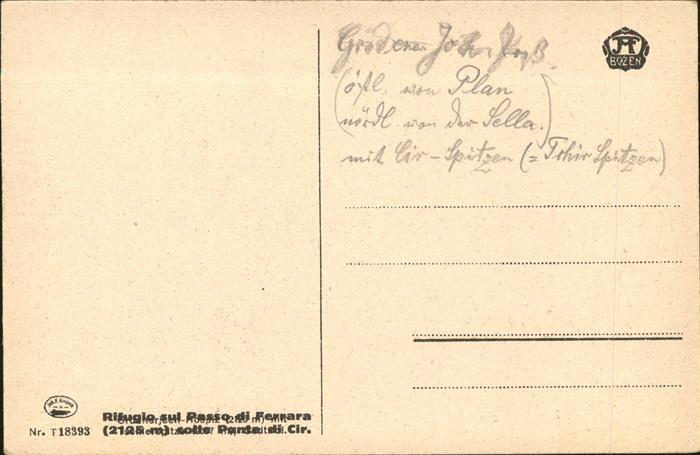 Grödener Joch
(östl. von Plan
nördl. von der Sella.)
mit Cir-Spitzen (= Tschir Spitzen)
BOZEN
Rifugio sul Passo di Ferrara
(2125 m) sotto Punta di Cir.
Nr. T 18393